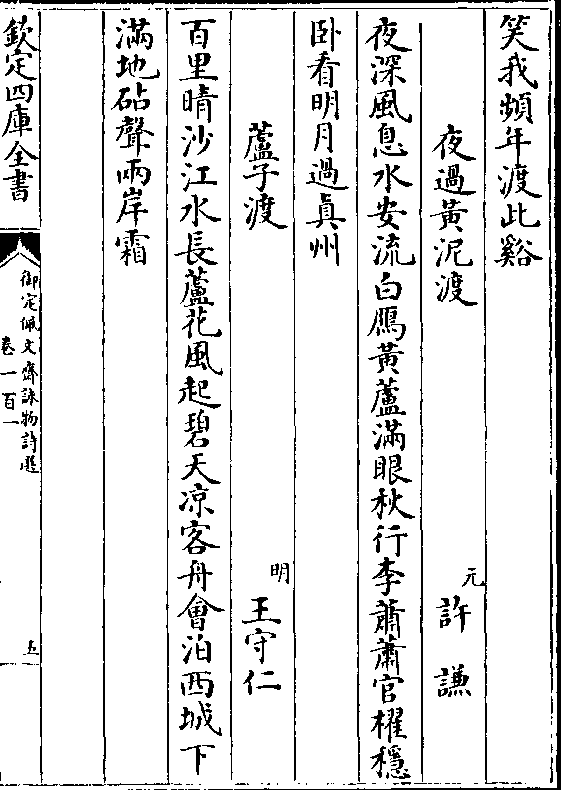 笑我頻年渡此谿
夜過黃泥渡 元 許謙
夜深風息水安流白鴈黃蘆滿眼秋行李蕭蕭官櫂穩
卧看明月過眞州
蘆子渡 明 王守仁
百里晴沙江水長蘆花風起碧天凉客舟會泊西城下
滿地砧聲兩岸霜
欽定四庫全書
御定佩文齋詠物詩選
卷一百一
五